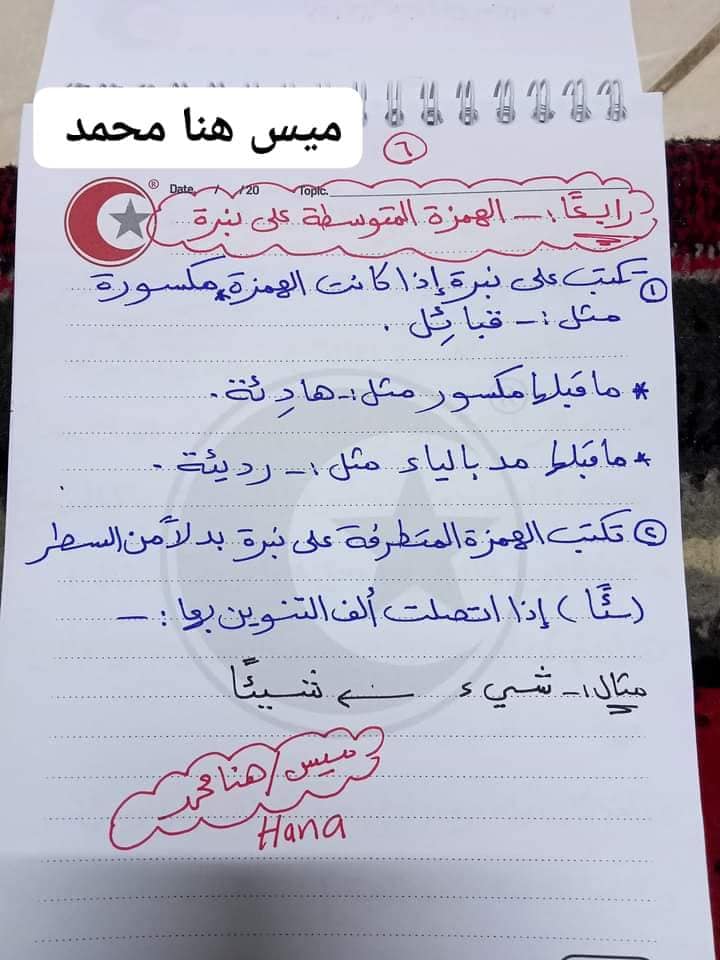 ميس هنا محمد
٦
® Date / /20 Topic.
رابعًا :- الهمزة المتوسطة على نبرة
١ تكتب على نبرة إذا كانت الهمزة * مكسورة
مثل :- قبائِل .
* ما قبلها مكسور مثل :- هادِئة .
* ما قبلها مد بالياء مثل :- رديئة .
٢ تكتب الهمزة المتطرفة على نبرة بدلاً من السطر
(ئًا) إذا اتصلت ألف التنوين بها :-
مثال :- شيء ← شيئًا
ميس / هنا محمد
Hana